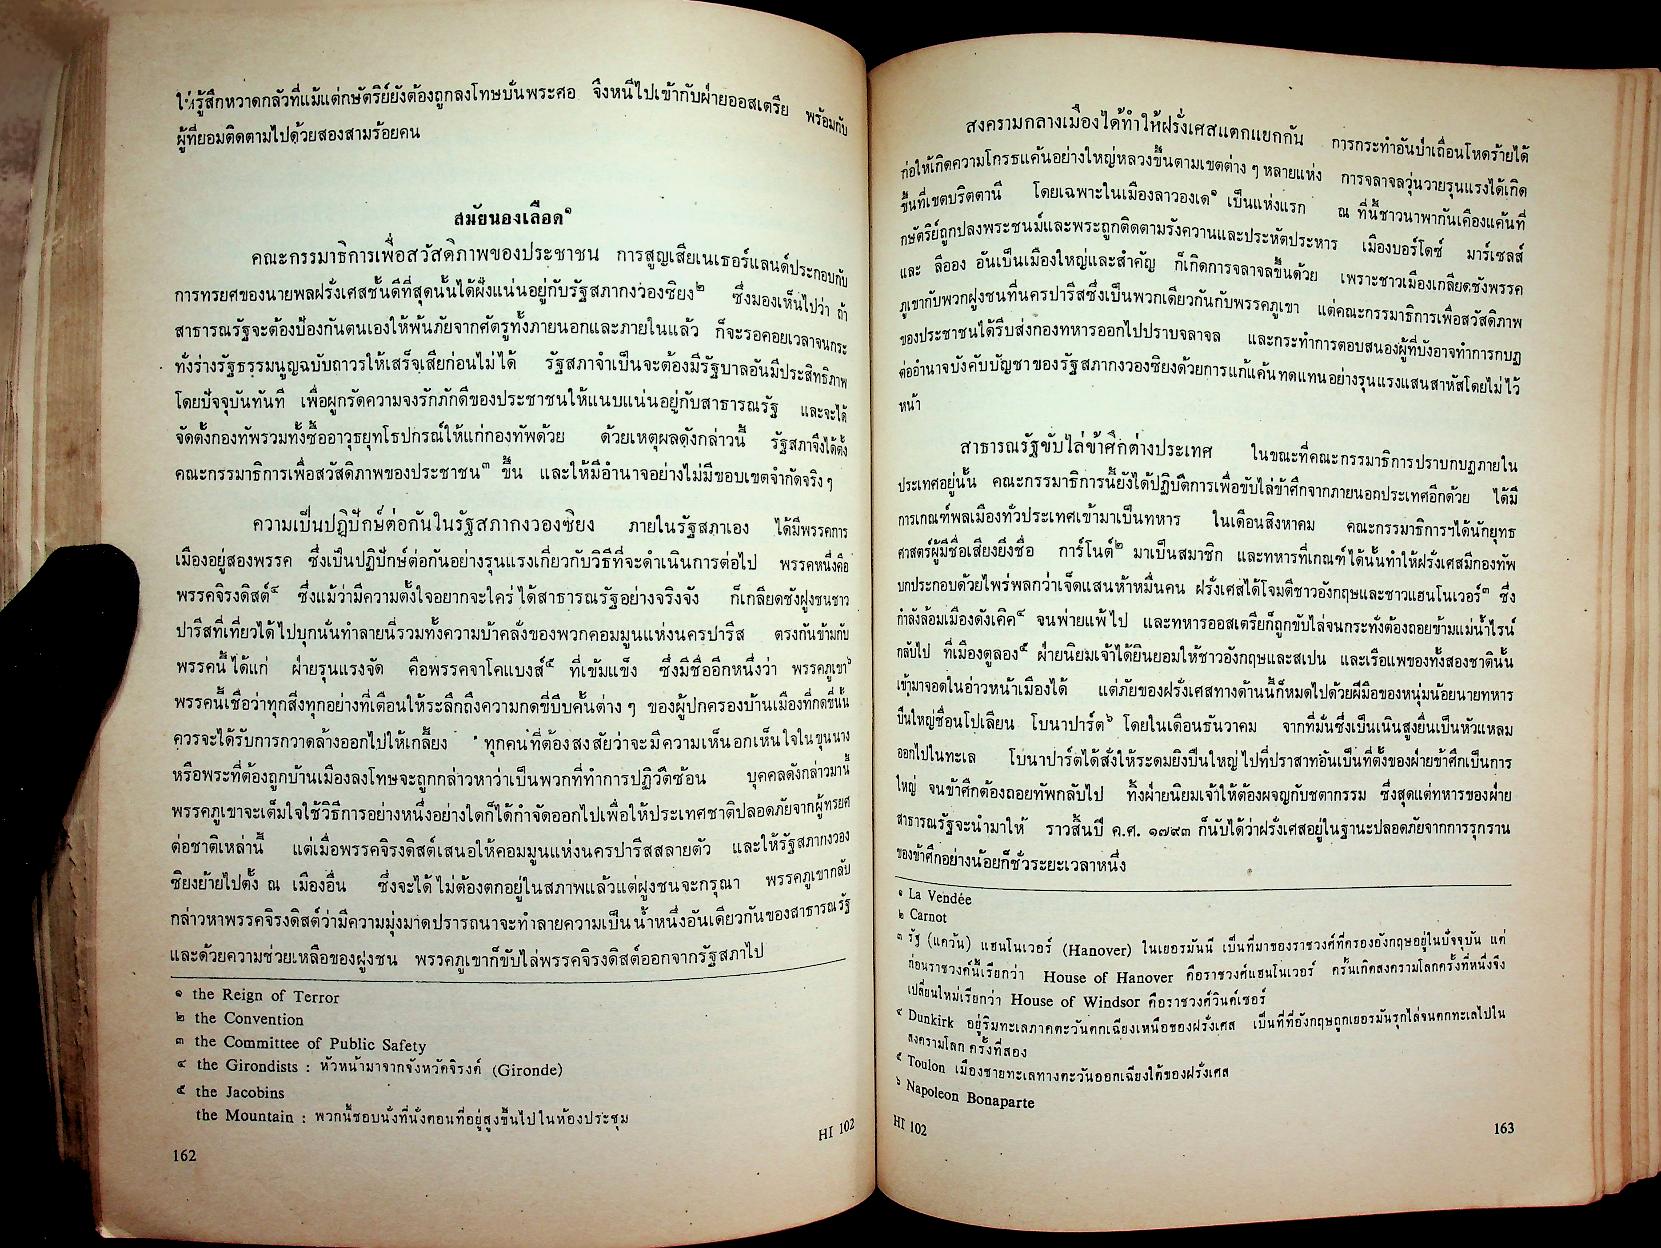 ให้รู้สึกหวาดกลัวที่แม้แต่กษัตริย์ยังต้องถูกลงโทษบั่นพระศอ จึงหนีไปเข้ากับฝ่ายออสเตรีย พร้อมกับ
ผู้ที่ยอมติดตามไปด้วยสองสามร้อยคน
สมัยนองเลือด๑
คณะกรรมาธิการเพื่อสวัสดิภาพของประชาชน การสูญเสียเนเธอร์แลนด์ประกอบกับ
การทรยศของนายพลฝรั่งเศสชั้นดีที่สุดนั้นได้ฝังแน่นอยู่กับรัฐสภากงวองซิยง๒ ซึ่งมองเห็นไปว่า ถ้า
สาธารณรัฐจะต้องป้องกันตนเองให้พ้นภัยจากศัตรูทั้งภายนอกและภายในแล้ว ก็จะรอคอยเวลาจนกระ
ทั่งร่างรัฐธรรมนูญฉบับถาวรให้เสร็จเสียก่อนไม่ได้ รัฐสภาจำเป็นจะต้องมีรัฐบาลอันมีประสิทธิภาพ
โดยปัจจุบันทันที เพื่อผูกรัดความจงรักภักดีของประชาชนให้แนบแน่นอยู่กับสาธารณรัฐ และจะได้
จัดตั้งกองทัพรวมทั้งซื้ออาวุธยุทโธปกรณ์ให้แก่กองทัพด้วย ด้วยเหตุผลดังกล่าวนี้ รัฐสภาจึงได้ตั้ง
คณะกรรมาธิการเพื่อสวัสดิภาพของประชาชน๓ ขึ้น และให้มีอำนาจอย่างไม่มีขอบเขตจำกัดจริงๆ
ความเป็นปฏิปักษ์ต่อกันในรัฐสภากงวองซิยง ภายในรัฐสภาเอง ได้มีพรรคการ
เมืองอยู่สองพรรค ซึ่งเป็นปฏิปักษ์ต่อกันอย่างรุนแรงเกี่ยวกับวิธีที่จะดำเนินการต่อไป พรรคหนึ่งคือ
พรรคจิรงดิสต์๔ ซึ่งแม้ว่ามีความตั้งใจอยากจะใคร่ได้สาธารณรัฐอย่างจริงจัง ก็เกลียดชังฝูงชนชาว
ปารีสที่เที่ยวได้ไปบุกนั่นทำลายนี่รวมทั้งความบ้าคลั่งของพวกคอมมูนแห่งนครปารีส ตรงกันข้ามกับ
พรรคนี้ได้แก่ ฝ่ายรุนแรงจัด คือพรรคจาโคแบงส์๕ ที่เข้มแข็ง ซึ่งมีชื่ออีกหนึ่งว่า พรรคภูเขา๖
พรรคนี้เชื่อว่าทุกสิ่งทุกอย่างที่เตือนให้ระลึกถึงความกดขี่บีบคั้นต่าง ๆ ของผู้ปกครองบ้านเมืองที่กดขี่นั้น
ควรจะได้รับการกวาดล้างออกไปให้เกลี้ยง ทุกคนที่ต้องสงสัยว่าจะมีความเห็นอกเห็นใจในขุนนาง
หรือพระที่ต้องถูกบ้านเมืองลงโทษจะถูกกล่าวหาว่าเป็นพวกที่ทำการปฏิวัติซ้อน บุคคลดังกล่าวมานี้
พรรคภูเขาจะเต็มใจใช้วิธีการอย่างหนึ่งอย่างใดก็ได้กำจัดออกไปเพื่อให้ประเทศชาติปลอดภัยจากผู้ทรยศ
ต่อชาติเหล่านี้ แต่เมื่อพรรคจิรงดิสต์เสนอให้คอมมูนแห่งนครปารีสสลายตัว และให้รัฐสภากงวอง
ซิยงย้ายไปตั้ง ณ เมืองอื่น ซึ่งจะได้ไม่ต้องตกอยู่ในสภาพแล้วแต่ฝูงชนจะกรุณา พรรคภูเขากลับ
กล่าวหาพรรคจิรงดิสต์ว่ามีความมุ่งมาดปรารถนาจะทำลายความเป็นน้ำหนึ่งอันเดียวกันของสาธารณรัฐ
และด้วยความช่วยเหลือของฝูงชน พรรคภูเขาก็ขับไล่พรรคจิรงดิสต์ออกจากรัฐสภาไป
๑ the Reign of Terror
๒ the Convention
๓ the Committee of Public Safety
๔ the Girondists : หัวหน้ามาจากจังหวัดจิรงค์ (Gironde)
๕ the Jacobins
the Mountain : พวกนี้ชอบนั่งที่นั่งตอนที่อยู่สูงขึ้นไปในห้องประชุม
HI 102
162
สงครามกลางเมืองได้ทำให้ฝรั่งเศสแตกแยกกัน การกระทำอันป่าเถื่อนโหดร้ายได้
ก่อให้เกิดความโกรธแค้นอย่างใหญ่หลวงขึ้นตามเขตต่าง ๆ หลายแห่ง การจลาจลวุ่นวายรุนแรงได้เกิด
ขึ้นที่เขตบริตตานี โดยเฉพาะในเมืองลาวองเด๑ เป็นแห่งแรก ณ ที่นี้ชาวนาพากันเคืองแค้นที่
กษัตริย์ถูกปลงพระชนม์และพระถูกติดตามรังควานและประหัตประหาร เมืองบอร์โดซ์ มาร์เซลส์
และ ลีออง อันเป็นเมืองใหญ่และสำคัญ ก็เกิดการจลาจลขึ้นด้วย เพราะชาวเมืองเกลียดชังพรรค
ภูเขากับพวกฝูงชนที่นครปารีสซึ่งเป็นพวกเดียวกันกับพรรคภูเขา แต่คณะกรรมาธิการเพื่อสวัสดิภาพ
ของประชาชนได้รีบส่งกองทหารออกไปปราบจลาจล และกระทำการตอบสนองผู้ที่บังอาจทำการกบฏ
ต่ออำนาจบังคับบัญชาของรัฐสภากงวองซิยงด้วยการแก้แค้นทดแทนอย่างรุนแรงแสนสาหัสโดยไม่ไว้
หน้า
สาธารณรัฐขับไล่ข้าศึกต่างประเทศ ในขณะที่คณะกรรมาธิการปราบกบฏภายใน
ประเทศอยู่นั้น คณะกรรมาธิการนี้ยังได้ปฏิบัติการเพื่อขับไล่ข้าศึกจากภายนอกประเทศอีกด้วย ได้มี
การเกณฑ์พลเมืองทั่วประเทศเข้ามาเป็นทหาร ในเดือนสิงหาคม คณะกรรมาธิการฯได้นักยุทธ
ศาสตร์ผู้มีชื่อเสียงยิ่งชื่อ การ์โนต์๒ มาเป็นสมาชิก และทหารที่เกณฑ์ได้นั้นทำให้ฝรั่งเศสมีกองทัพ
บกประกอบด้วยไพร่พลกว่าเจ็ดแสนห้าหมื่นคน ฝรั่งเศสได้โจมตีชาวอังกฤษและชาวแฮนโนเวอร์๓ ซึ่ง
กำลังล้อมเมืองดังเคิค๔ จนพ่ายแพ้ไป และทหารออสเตรียก็ถูกขับไล่จนกระทั่งต้องถอยข้ามแม่น้ำไรน์
กลับไป ที่เมืองตูลอง๕ ฝ่ายนิยมเจ้าได้ยินยอมให้ชาวอังกฤษและสเปน และเรือแพของทั้งสองชาตินั้น
เข้ามาจอดในอ่าวหน้าเมืองได้ แต่ภัยของฝรั่งเศสทางด้านนี้ก็หมดไปด้วยฝีมือของหนุ่มน้อยนายทหาร
ปืนใหญ่ชื่อนโปเลียน โบนาปาร์ต๖ โดยในเดือนธันวาคม จากที่มั่นซึ่งเป็นเนินสูงยื่นเป็นหัวแหลม
ออกไปในทะเล โบนาปาร์ตได้สั่งให้ระดมยิงปืนใหญ่ไปที่ปราสาทอันเป็นที่ตั้งของฝ่ายข้าศึกเป็นการ
ใหญ่ จนข้าศึกต้องถอยทัพกลับไป ทิ้งฝ่ายนิยมเจ้าให้ต้องผจญกับชตากรรม ซึ่งสุดแต่ทหารของฝ่าย
สาธารณรัฐจะนำมาให้ ราวสิ้นปี ค.ศ. ๑๗๙๓ ก็นับได้ว่าฝรั่งเศสอยู่ในฐานะปลอดภัยจากการรุกราน
ของข้าศึกอย่างน้อยก็ชั่วระยะเวลาหนึ่ง
๑ La Vendée
๒ Carnot
๓ รัฐ (แคว้น) แฮนโนเวอร์ (Hanover) ในเยอรมันนี เป็นที่มาของราชวงศ์ที่ครองอังกฤษอยู่ในปัจจุบัน แต่
ก่อนราชวงศ์นี้เรียกว่า House of Hanover คือราชวงศ์แฮนโนเวอร์ ครั้นเกิดสงครามโลกครั้งที่หนึ่งจึง
เปลี่ยนใหม่เรียกว่า House of Windsor คือราชวงศ์วินด์เซอร์
๔ Dunkirk อยู่ริมทะเลภาคตะวันตกเฉียงเหนือของฝรั่งเศส เป็นที่ที่อังกฤษถูกเยอรมันรุกไล่จนตกทะเลไปใน
สงครามโลก ครั้งที่สอง
๕ Toulon เมืองชายทะเลทางตะวันออกเฉียงใต้ของฝรั่งเศส
๖ Napoleon Bonaparte
HI 102
163